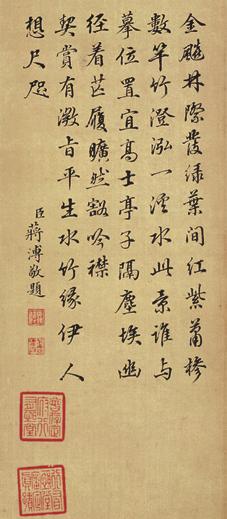 金飈林際發綠葉間紅紫蕭槮
數竿竹澄泓一溪水此景誰与
摹位置宜高士亭子隔塵埃幽
徑着芒屨曠然豁吟襟
契賞有澂旨平生水竹緣伊人
想尺咫
臣蔣溥敬題